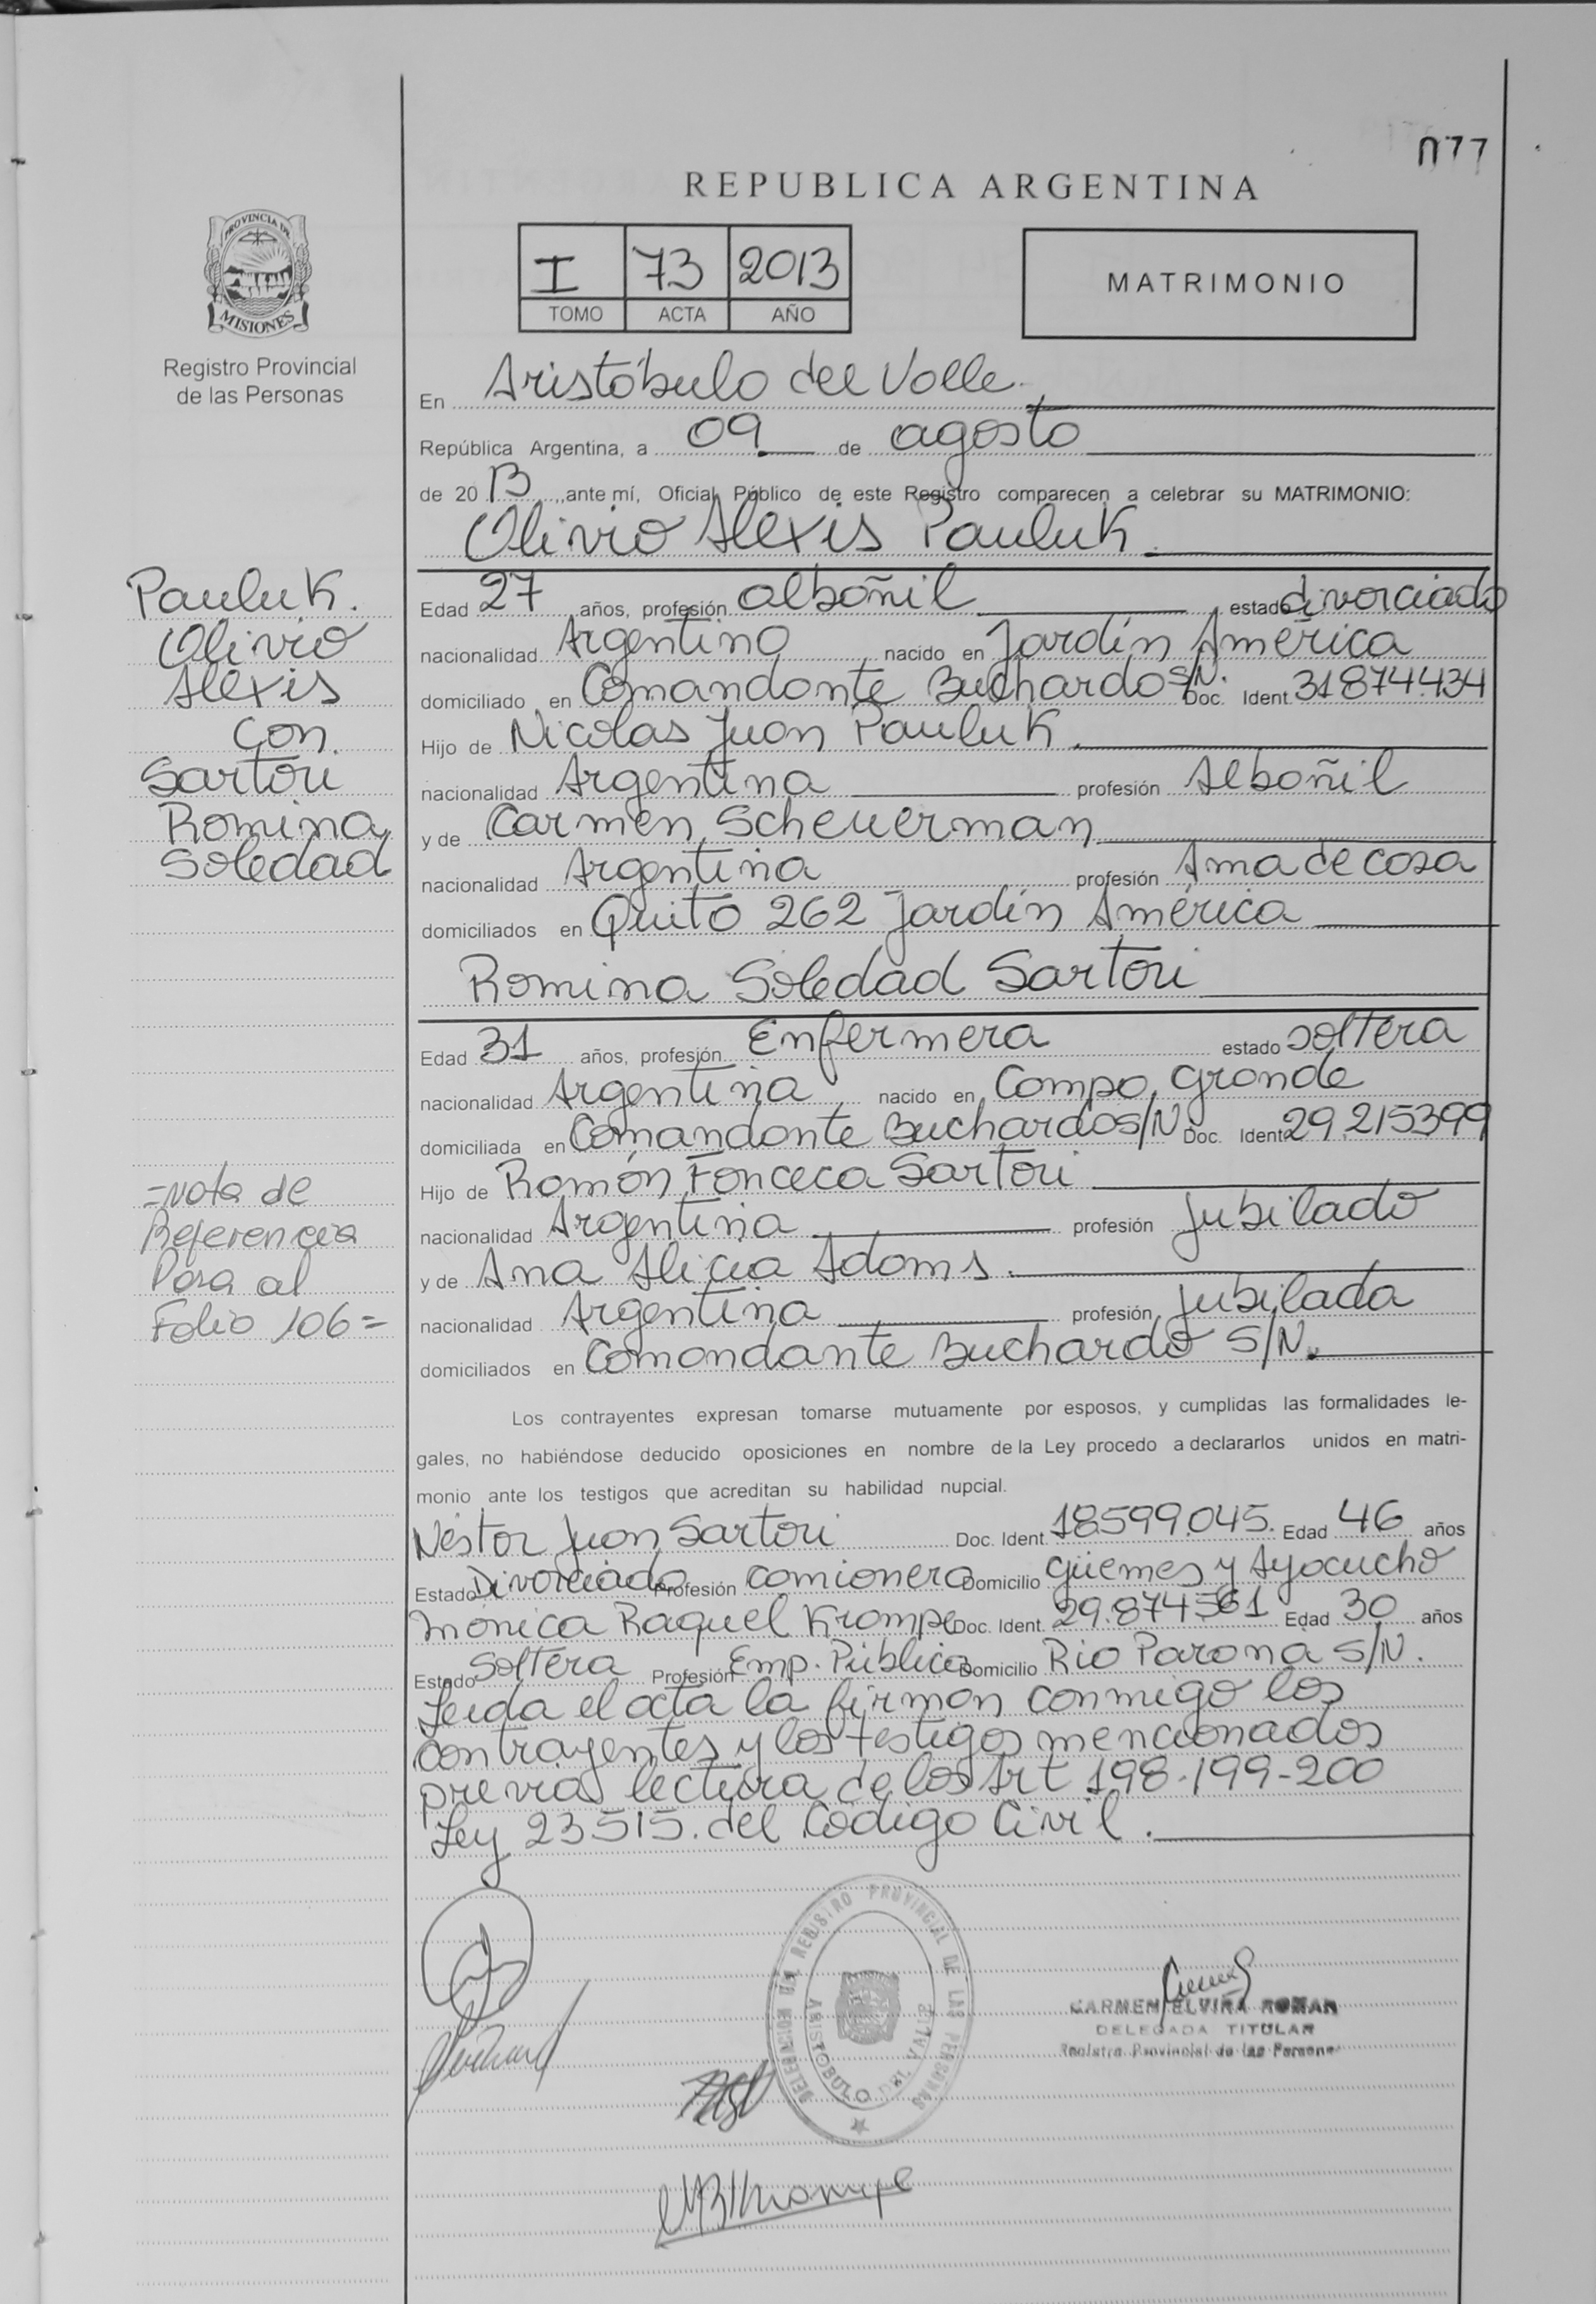 077
REPUBLICA ARGENTINA
PROVINCIA DE
MISIONES
Registro Provincial
de las Personas
I 73 2013
TOMO ACTA AÑO
MATRIMONIO
En Aristóbulo del Valle.
República Argentina, a 09 de agosto
de 20 13 ,,ante mí, Oficial Público de este Registro comparecen a celebrar su MATRIMONIO:
Olivio Alexis Pauluk.
Pauluk.
Olivio
Alexis
con.
Sartori
Romina
Soledad
Edad 27 años, profesión albañil estado divorciado
nacionalidad Argentina nacido en Jardín América
domiciliado en Comandante Buchardo S/N. Doc. Ident. 31874.434
Hijo de Nicolas Juan Pauluk.
nacionalidad Argentina profesión Albañil
y de Carmen Scheuerman
nacionalidad Argentina profesión Ama de casa
domiciliados en Quito 262 Jardín América
Romina Soledad Sartori
Edad 31 años, profesión Enfermera estado soltera
nacionalidad Argentina nacido en Campo Grande
domiciliada en Comandante Buchardo S/N Doc. Ident. 29.215399
Hijo de Ramón Fonceca Sartori
nacionalidad Argentina profesión Jubilado
y de Ana Alicia Adams.
nacionalidad Argentina profesión Jubilada
domiciliados en Comandante Buchardo S/N.
=Nota de
Referencia
Pasa al
Folio 106=
Los contrayentes expresan tomarse mutuamente por esposos, y cumplidas las formalidades le-
gales, no habiéndose deducido oposiciones en nombre de la Ley procedo a declararlos unidos en matri-
monio ante los testigos que acreditan su habilidad nupcial.
Néstor Juan Sartori Doc. Ident. 18599.045. Edad 46 años
Estado Divorciado Profesión camionero Domicilio Güemes y Ayacucho
Mónica Raquel Krompe Doc. Ident. 29.874561 Edad 30 años
Estado Soltera Profesión Emp. Publica Domicilio Rio Parana S/N.
Leida el acta la firman conmigo los
contrayentes y los testigos mencionados
previa lectura de los Art 198-199-200
Ley 23515. del Código Civil.
DELEGACION DEL REGISTRO PROVINCIAL DE LAS PERSONAS
ARISTOBULO DEL VALLE
CARMEN ELVIRA ROMAN
DELEGADA TITULAR
Registro Provincial de las Persona